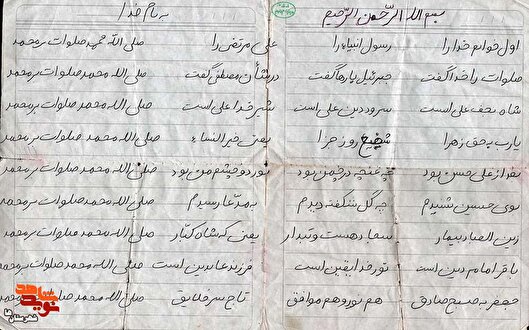 بسم الله الرّحمن الرّحیم به نام خدا
اول خوانم خدا را رسول انبیاء را علی مرتضی را صلی الله محمد صلوات بر محمد
صلوات را خدا گفت جبرئیل بارها گفت در شأن مصطفی گفت صلی الله محمد صلوات بر محمد
شاه نجف علی است سرور دین علی است شیر خدا علی است صلی الله محمد صلوات بر محمد
یارب به حق زهرا شفیع روز جزا یعنی خیر النساء صلی الله محمد صلوات بر محمد
بعد از علی حسن بود چه غنچه در چمن بود نور دو چشم من بود صلی الله محمد صلوات بر محمد
بوی حسین شنیدم چه گل شکفته دیدم به مدعا رسیدم صلی الله محمد صلوات بر محمد
زین العباد بیمار سجاد هست و تبدار یعنی که شاه کبّار صلی الله محمد صلوات بر محمد
باقر امام دین است نور خدا یقین است فرزند عابدین است صلی الله محمد صلوات بر محمد
جعفر به صبح صادق هم نور و هم موافق تاج سر خلایق صلی الله محمد صلوات بر محمد